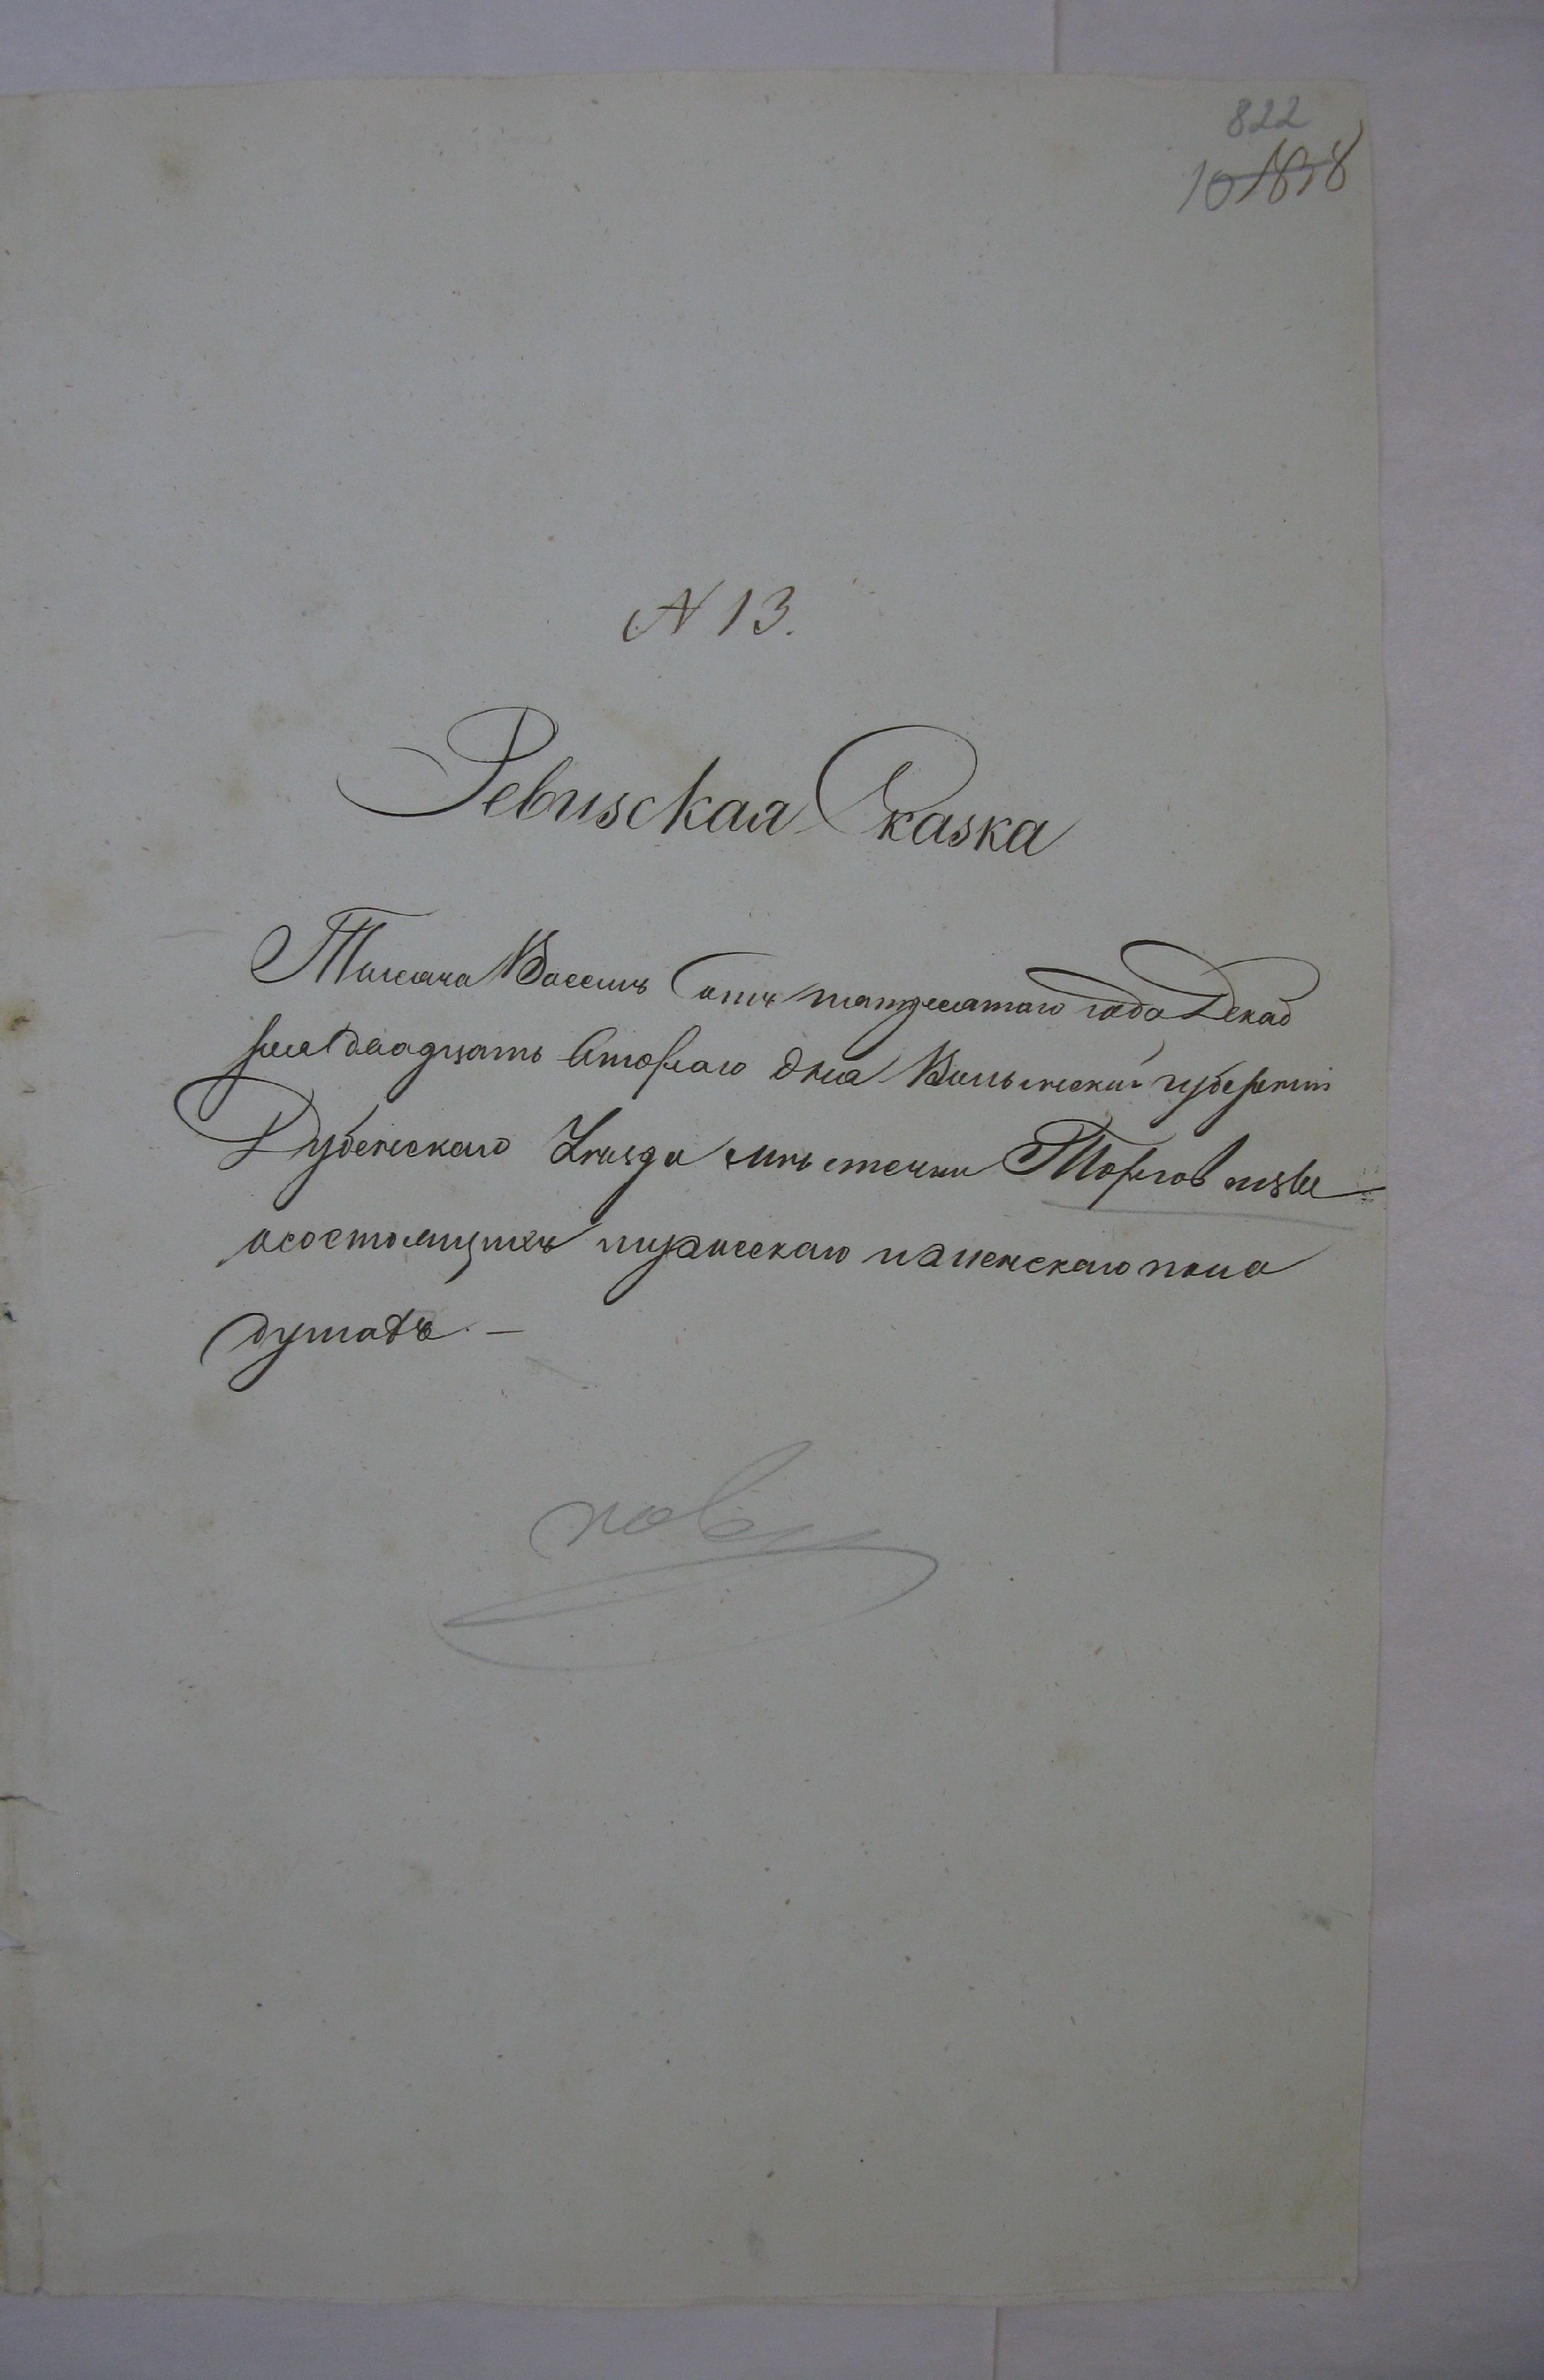 822
10 1838
N 13.
Ревизская Сказка
Тысяча Восемь сотъ пятдесятаго года Декаб
ря двадцать втораго дня Волынской губернiи
Дубенскаго Уѣзда мѣстечки Торговицы
осостоящихъ мужескаго иженскаго пола
душахъ. —